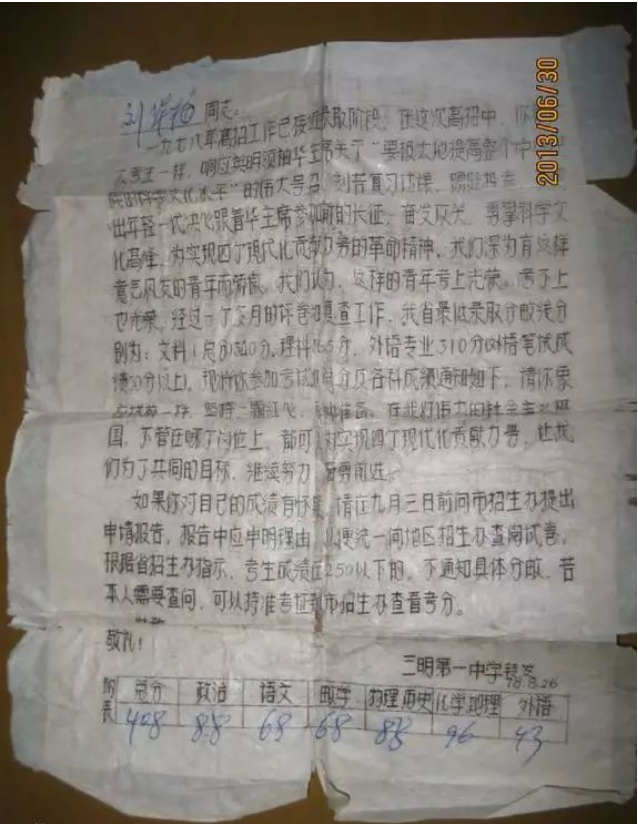 2013/06/30
刘 同志：
一九七八年高招工作已接近录取阶段，在这次高招中，你
人考生一样，响应英明领袖华主席关于“要极大地提高整个中
的科学文化水平”的伟大号召，刻苦复习功课，踊跃投考，
出年轻一代决心跟着华主席参加新的长征，奋发攻关，勇攀科学文
化高峰，为实现四个现代化贡献力量的革命精神。我们深为有这样
意气风发的青年而骄傲。我们认为，这样的青年考上光荣，考不上
也光荣，经过一个多月的评卷和复查工作，我省最低录取分数线分
别为：文科（总分）300分，理科 分，外语专业310分（外语笔试成
绩50分以上），现将你参加考试的总分及各科成绩通知如下，请你象
一样，坚持一颗红心， 准备，在我们伟大的社会主义祖
国，不管在哪个岗位上，都可以为实现四个现代化贡献力量，让我
们为了共同的目标，继续努力，奋勇前进。
如果你对自己的成绩有怀疑，请在九月三日前向市招生办提出
申请报告，报告中应申明理由，以便统一向地区招生办查阅试卷。
根据省招生办指示，考生成绩在250以下的，不通知具体分数，若
本人需要查问，可以持准考证到市招生办查看考分。
敬礼！
三明第一中学转发
78.8.26
附表 总分 政治 语文 数学 物理 历史 化学 地理 外语
408 88 68 68 88 96 43